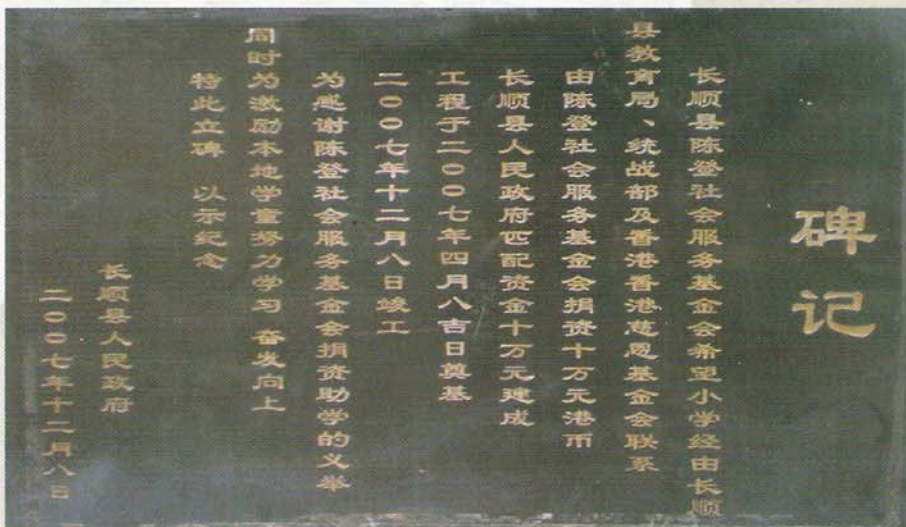 碑记
长顺县陈登社会服务基金会希望小学经由长顺
县教育局、统战部及香港香港慈恩基金会联系
由陈登社会服务基金会捐资十万元港币
长顺县人民政府匹配资金十万元建成
工程于二〇〇七年四月八吉日奠基
二〇〇七年十二月八日竣工
为感谢陈登社会服务基金会捐资助学的义举
同时为激励本地学童努力学习 奋发向上
特此立碑 以示纪念
长顺县人民政府
二〇〇七年十二月八日